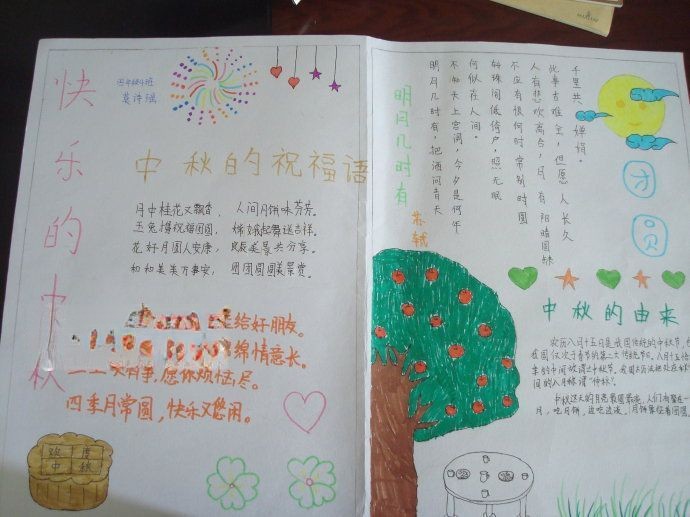 快乐的中秋
四年级4班
中秋的祝福语
月中桂花又飘香， 人间月饼味芬芳。
玉兔捧祝福团圆， 嫦娥起舞送吉祥。
花好月圆人安康， 良辰美景共分享。
和和美美万事安， 团团圆圆美景赏。
给好朋友。
绵情意长。
有事，愿你烦恼尽。
四季月常圆，快乐又悠闲。
欢度
中秋
明月几时有
苏轼
明月几时有，把酒问青天
不知天上宫阙，今夕是何年
何似在人间。
转珠阁低绮户，照无眠
不应有恨何时常别时圆
人有悲欢离合，月有阴晴圆缺
此事古难全，但愿人长久
千里共婵娟。
团圆
中秋的由来
农历八月十五日是我国传统的中秋节，
我国仅次于春节的第二大传统节日。八月十五
季的中间故谓之中秋节。我国古历法把处在
间的八月称谓“仲秋”。
中秋这天的月亮最圆最亮，人们
月，吃月饼，边吃边谈。月饼象征着团圆。